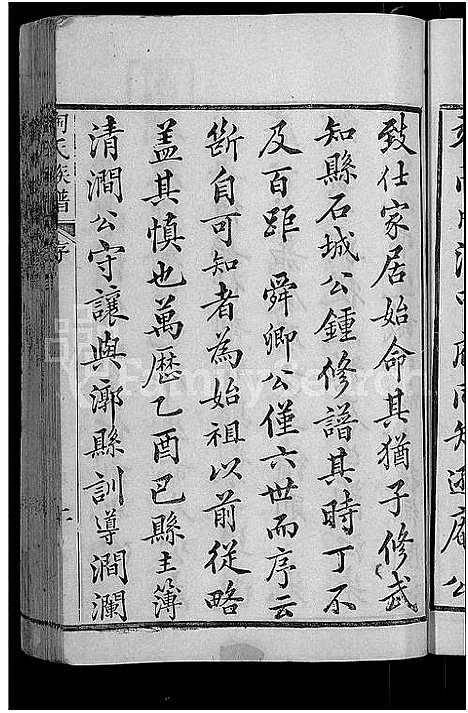 致仕家居始命其猶子修武
知縣石城公鍾修譜其時丁不
及百距 舜卿公僅六世而序云
斷自可知者為始祖以前從略
蓋其慎也萬歷乙酉巳縣主簿
清澗公守讓與漷縣訓導澗瀾
氏族譜
序
FamilySearch